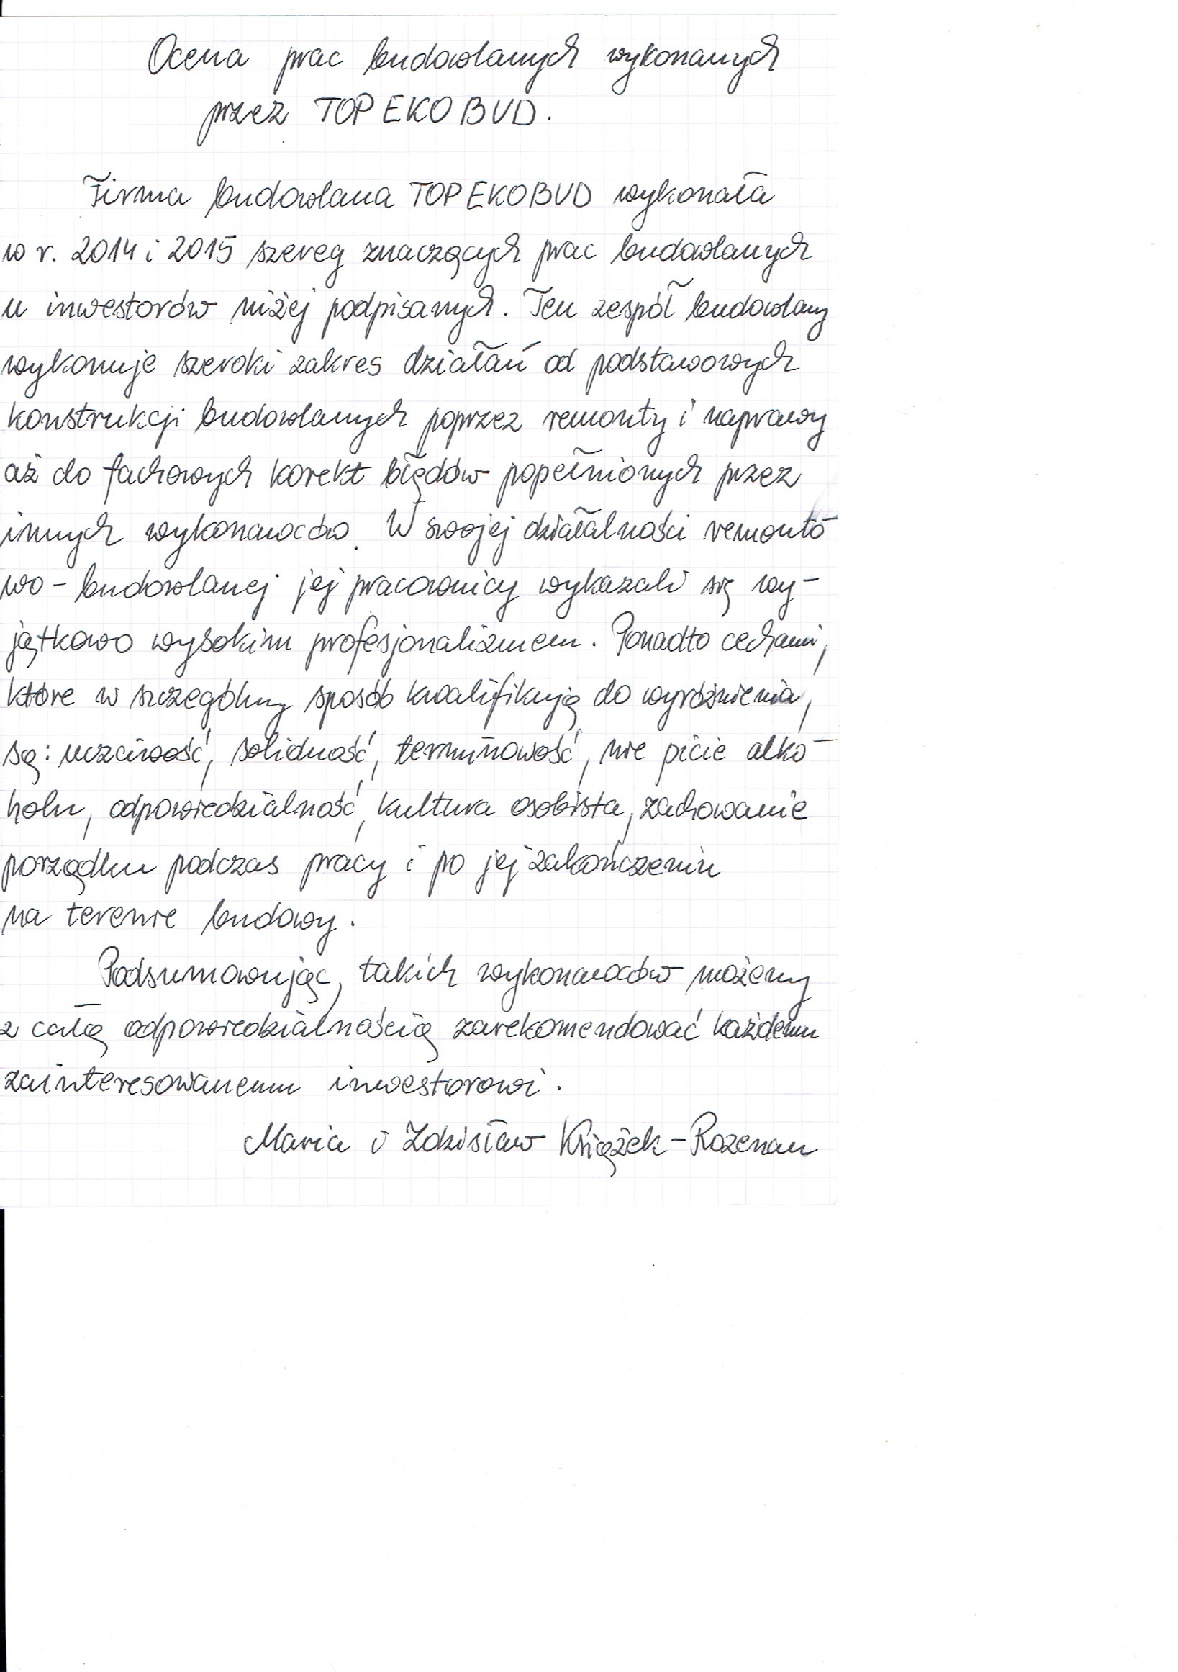 Ocena prac budowlanych wykonanych
przez TOP EKO BUD.
Firma budowlana TOP EKOBUD wykonała
w r. 2014 i 2015 szereg znaczących prac budowlanych
u inwestorów niżej podpisanych. Ten zespół budowlany
wykonuje szeroki zakres działań od podstawowych
konstrukcji budowlanych poprzez remonty i naprawy
aż do fachowych korekt błędów popełnionych przez
innych wykonawców. W swojej działalności remonto
wo - budowlanej jej pracownicy wykazali się wy-
jątkowo wysokim profesjonalizmem. Ponadto cechami,
które w szczególny sposób kwalifikują do wyróżnienia,
są: uczciwość, solidność, terminowość, nie picie alko-
holu, odpowiedzialność, kultura osobista, zachowanie
porządku podczas pracy i po jej zakończeniu
na terenie budowy.
Podsumowując, takich wykonawców możemy
z całą odpowiedzialnością zarekomendować każdemu
zainteresowanemu inwestorowi.
Maria i Zdzisław Książek-Rozenau